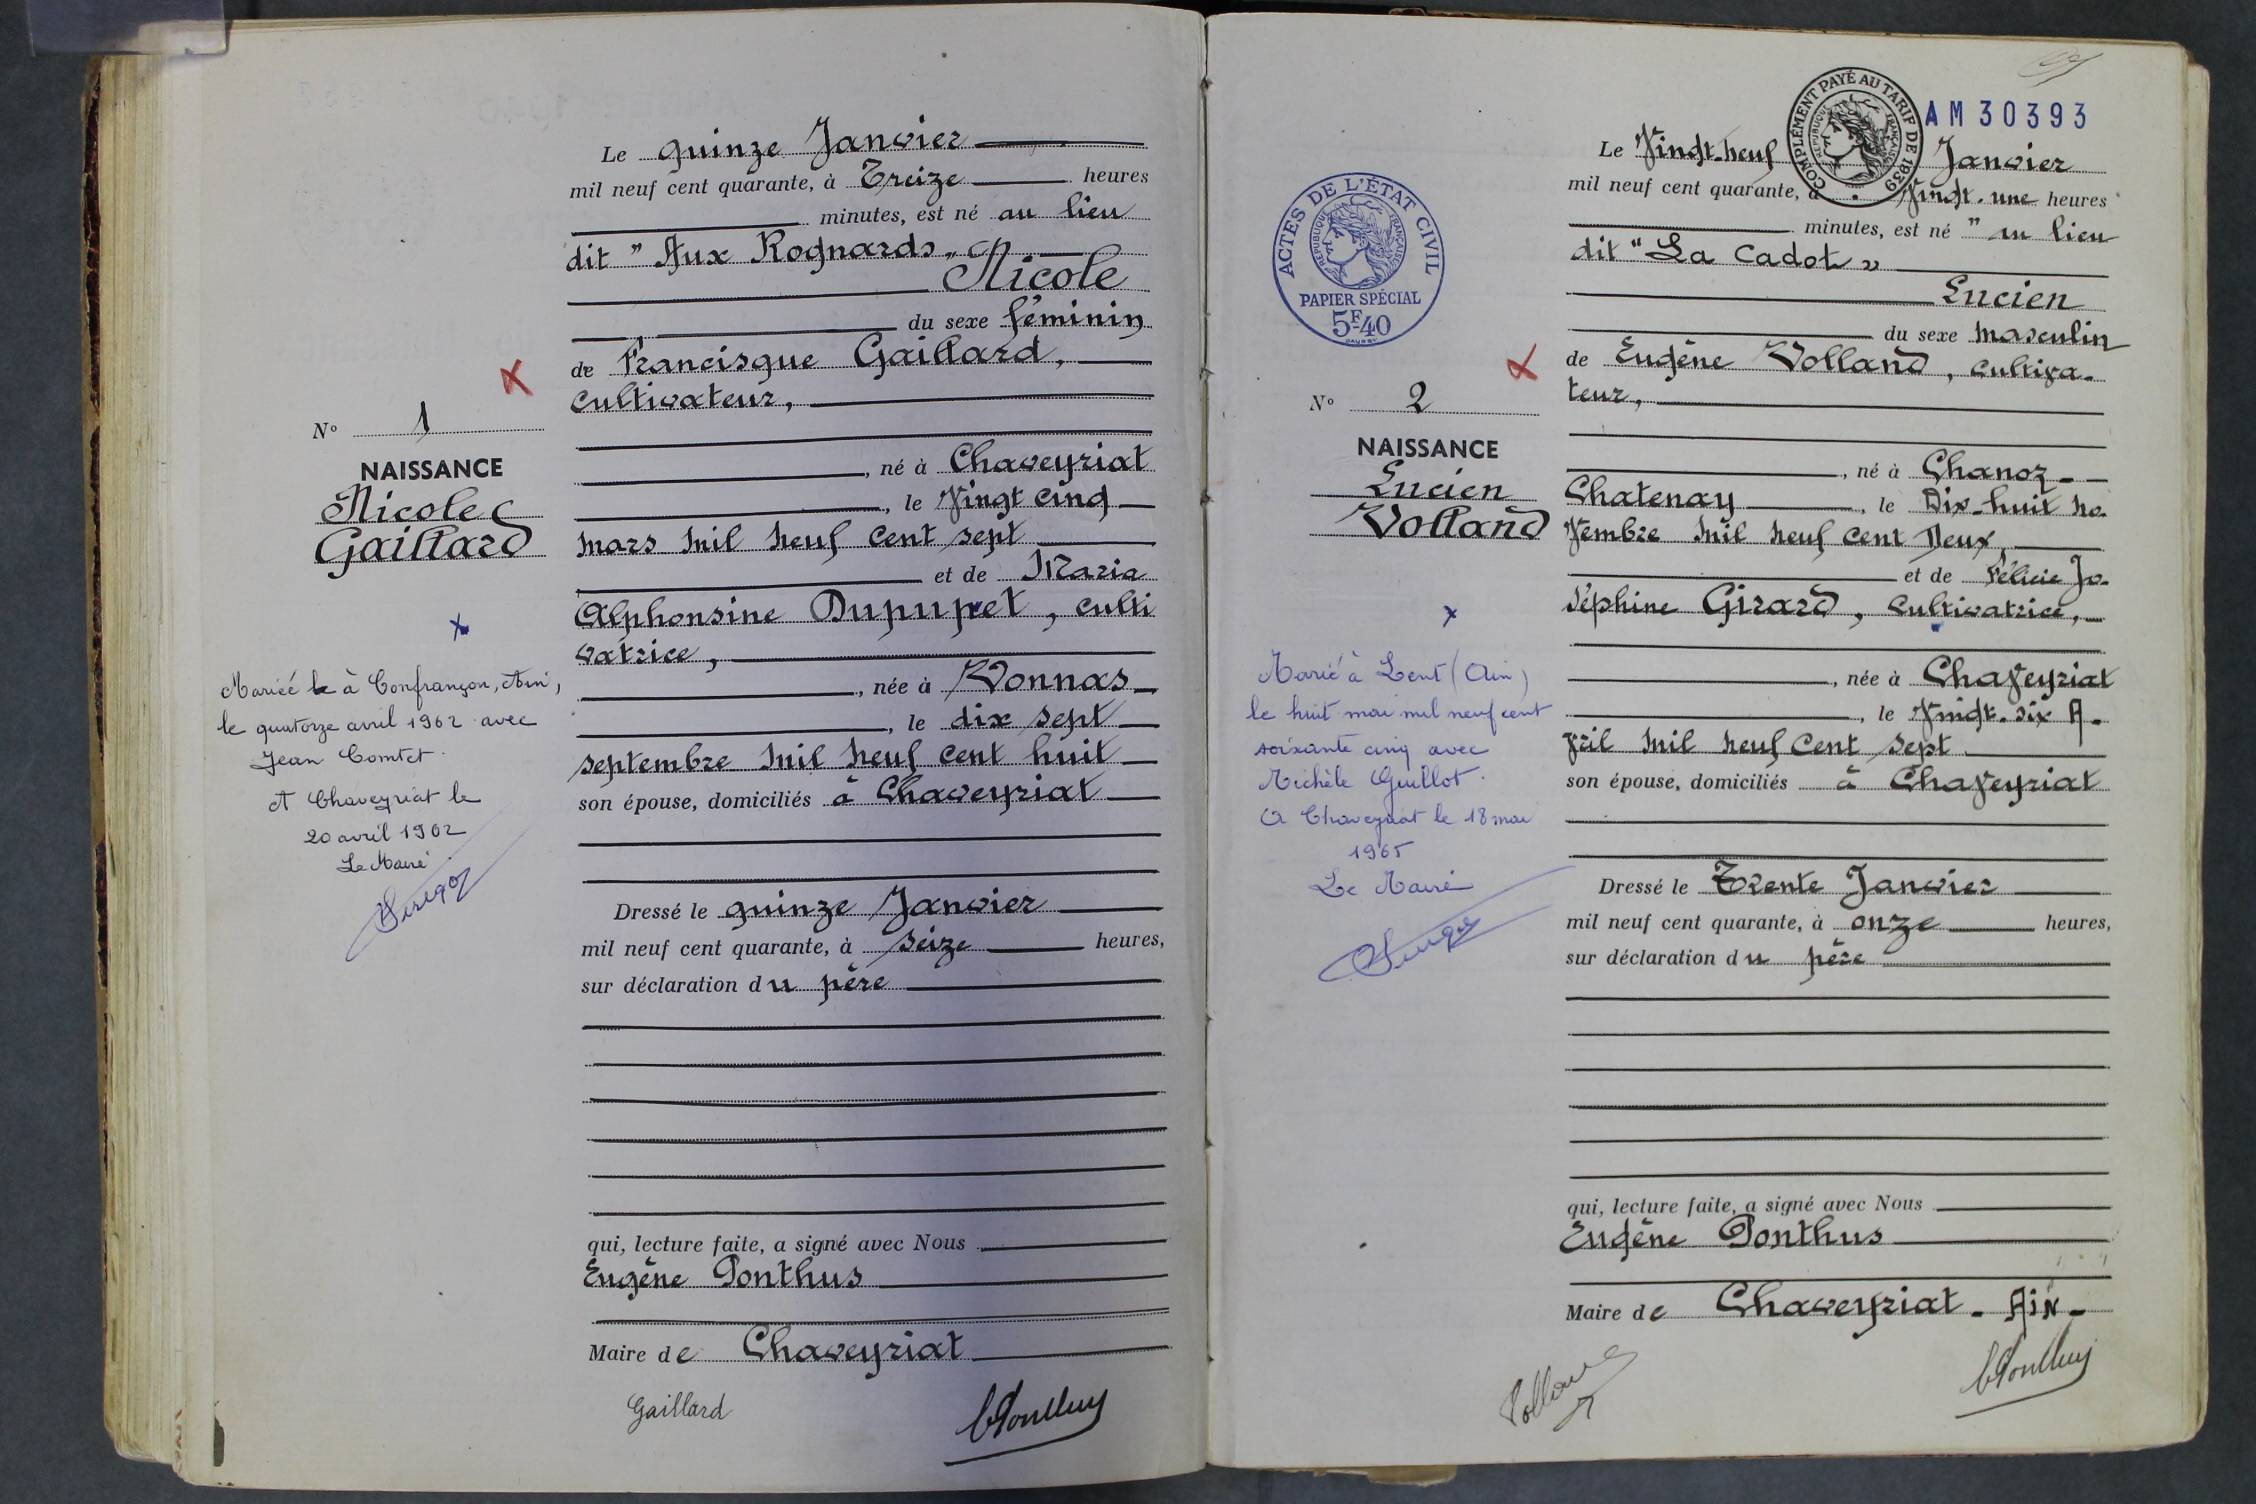 Le quinze Janvier
mil neuf cent quarante, à Treize heures
minutes, est né au lieu
dit " Aux Rognards "
Nicole
du sexe féminin
de Francisque Gaillard,
cultivateur,
, né à Chaveyriat
, le Vingt cinq
mars mil neuf cent sept
et de Maria
Alphonsine Dupupet, culti
vatrice,
, née à Vonnas
, le dix sept
septembre mil neuf cent huit
son épouse, domiciliés à Chaveyriat
Dressé le quinze Janvier
mil neuf cent quarante, à seize heures,
sur déclaration du père
qui, lecture faite, a signé avec Nous
Eugène Ponthus
Maire de Chaveyriat
Gaillard
N° 1
NAISSANCE
Nicole
Gaillard
Mariée à Confrançon, Ain,
le quatorze avril 1962 avec
Jean Comtet
A Chaveyriat le
20 avril 1962
Le Maire
AM30393
COMPLÉMENT PAYÉ AU TARIF DE 1939
RÉPUBLIQUE FRANÇAISE
Le Vingt-neuf Janvier
mil neuf cent quarante, à Vingt-une heures
minutes, est né " au lieu
dit "La Cadot"
Lucien
du sexe masculin
de Eugène Volland, cultiva-
teur,
, né à Chanoz-
Chatenay, le Dix-huit no-
vembre mil neuf cent Deux,
et de Félicie Jo-
séphine Girard, cultivatrice,
, née à Chaveyriat
, le Vingt-six A-
vril mil neuf cent sept
son épouse, domiciliés à Chaveyriat
Dressé le Trente Janvier
mil neuf cent quarante, à onze heures,
sur déclaration du père
qui, lecture faite, a signé avec Nous
Eugène Ponthus
Maire de Chaveyriat - Ain -
ACTES DE L'ÉTAT CIVIL
RÉPUBLIQUE FRANÇAISE
PAPIER SPÉCIAL
5F40
N° 2
NAISSANCE
Lucien
Volland
Marié à Lent (Ain)
le huit mai mil neuf cent
soixante cinq avec
Michèle Guillot.
A Chaveyriat le 18 mai
1965
Le Maire